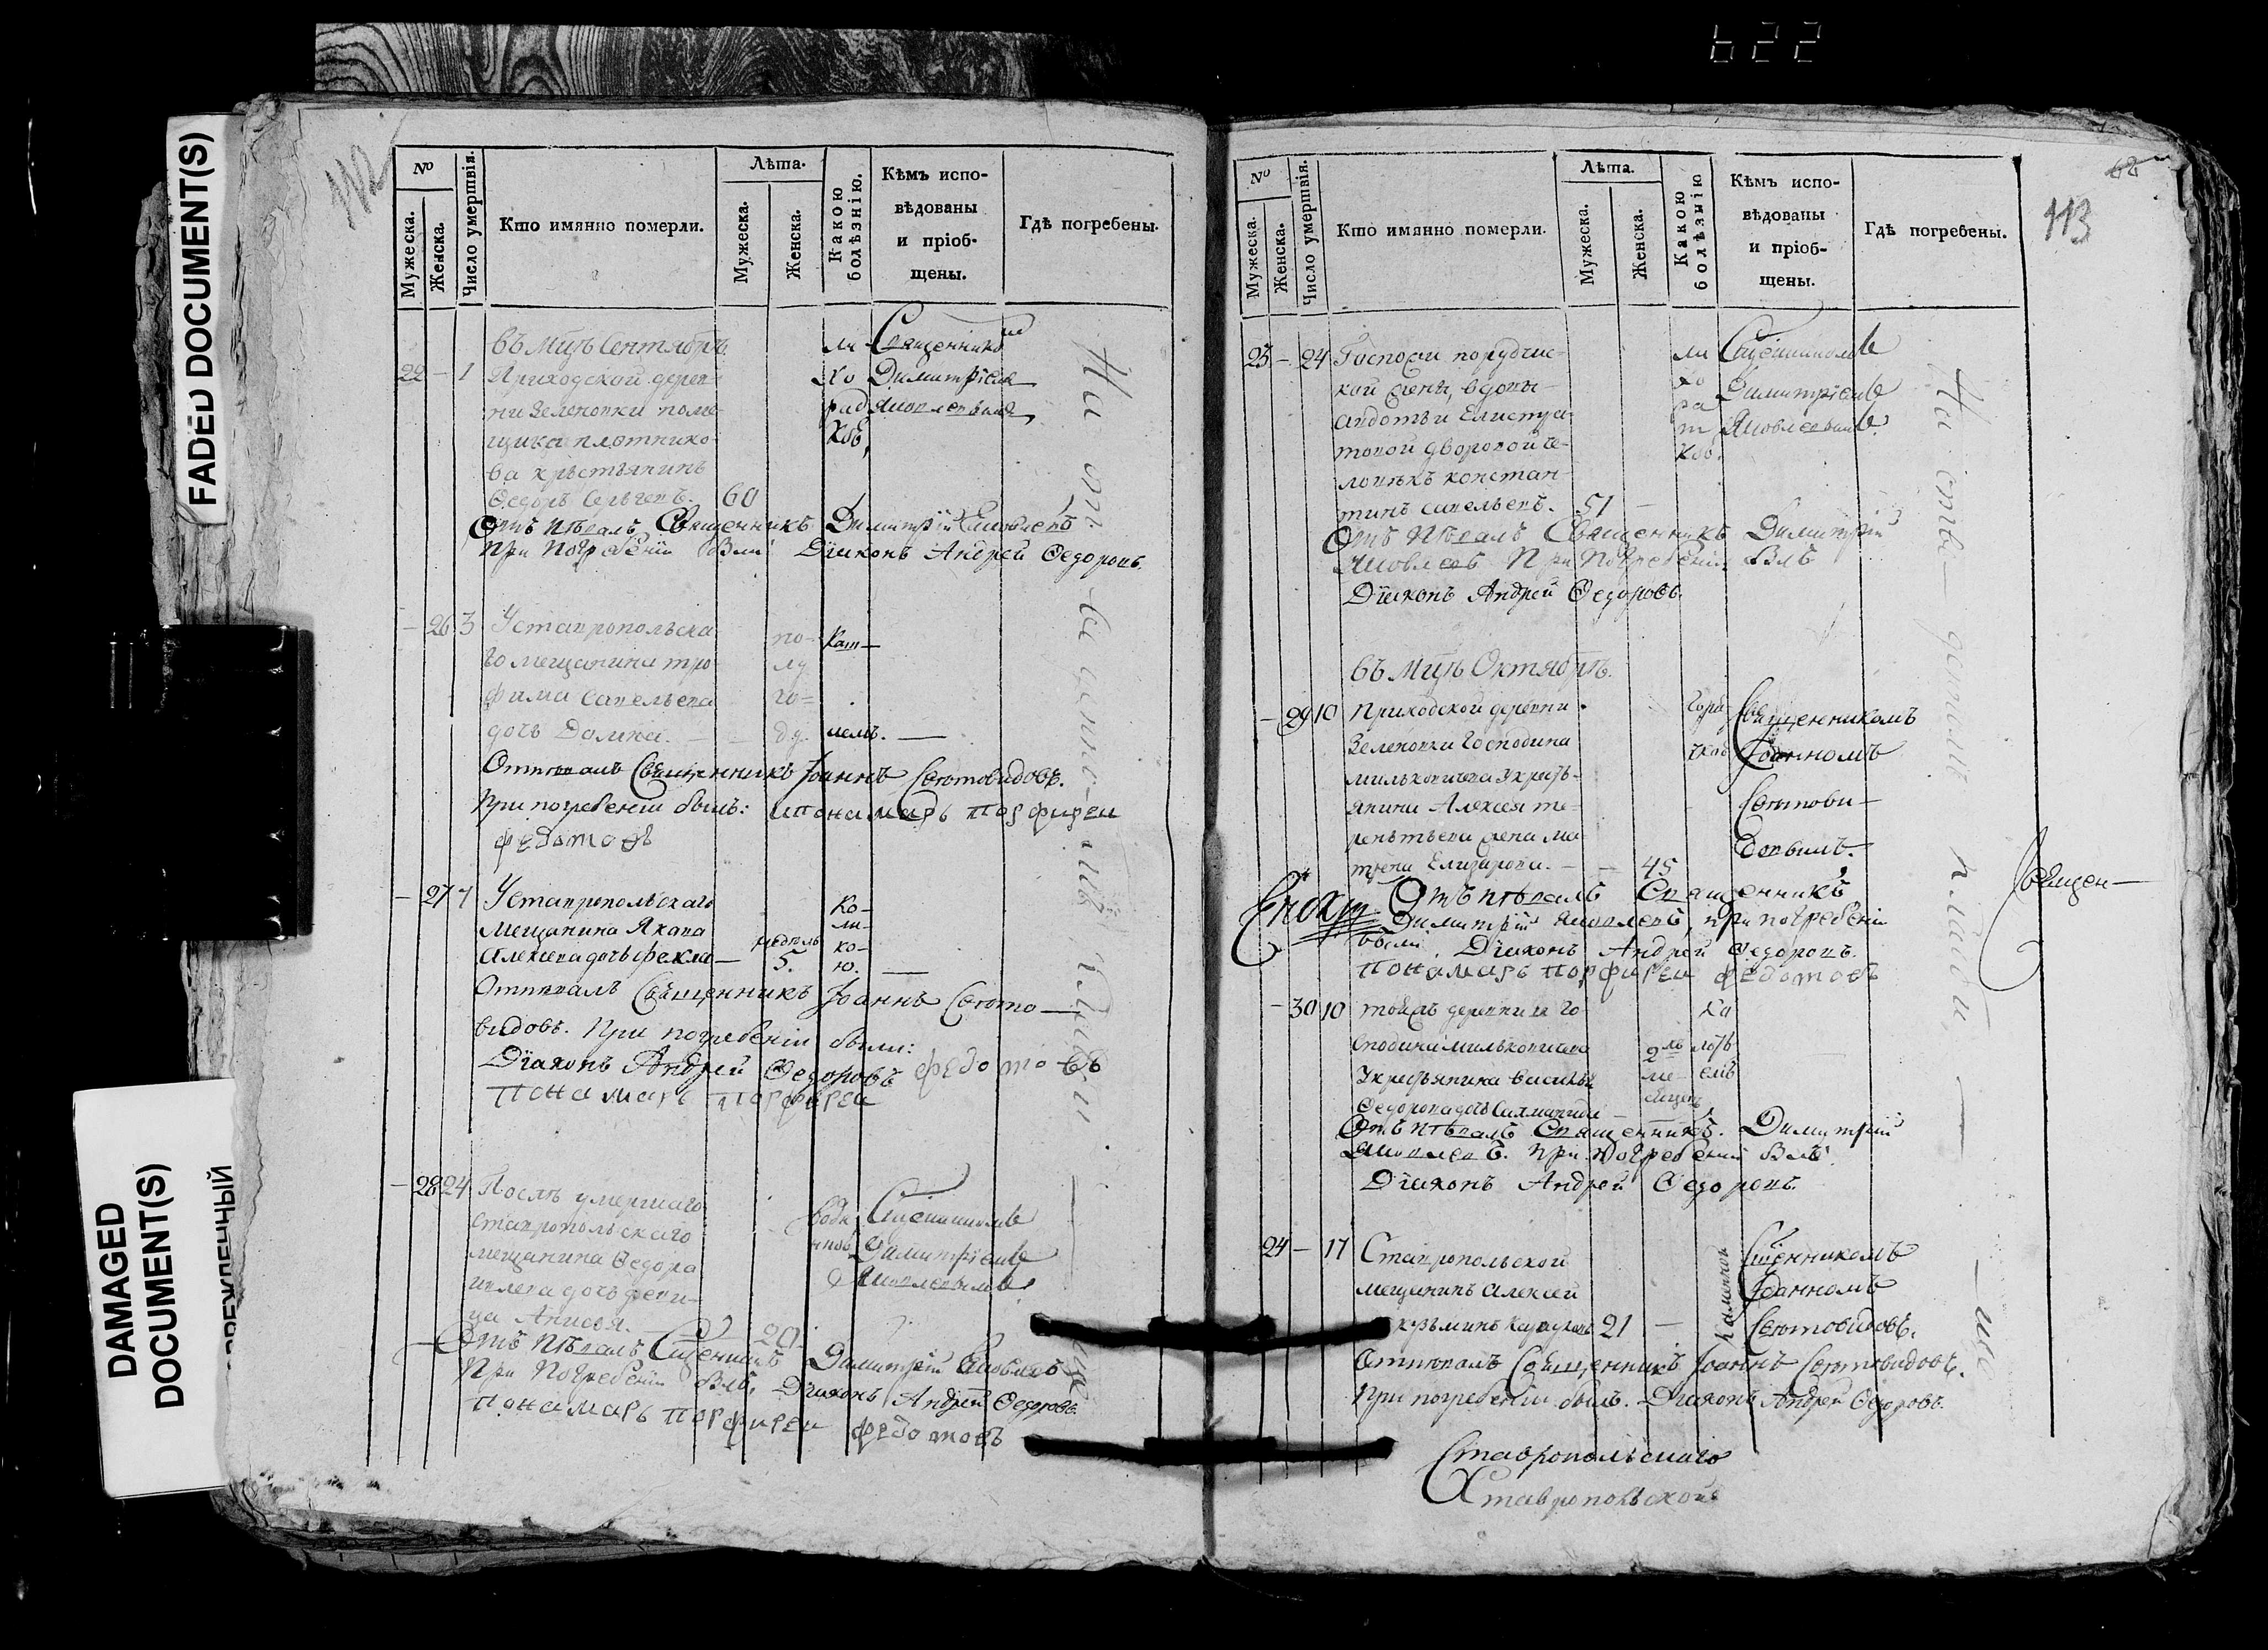 622
FADED DOCUMENT(S)
DAMAGED
DOCUMENT(S)
112
№
Мужеска.
Женска.
Число умертвія.
Кто имянно померли.
Лѣта.
Мужеска.
Женска.
Какою
болѣзнію.
Кѣмъ испо-
вѣдованы
и пріоб-
щены.
Гдѣ погребены.
въ мцѣ Сентябрѣ
22 – 1 Приходской дерев-
ни Зеленовки поме-
щика плотнико-
ва крестьянинъ
Ѳедоръ Сергеевъ. 60
ли
хо
рад
кой
Священникомъ
Димитріемъ
Яковлевымъ
Отъ пѣвалъ Священникъ Димитрій Яковлевъ
При Погребеніи Былъ Діаконъ Андрей Ѳедоровъ.
– 26 3 Уставропольска
го мещанина тро
фима савельева
дочь Домна.
по-
лу
го-
ду
Каш–
лемъ. –
Отпѣвалъ Священникъ Іоаннъ Свѣтовидовъ.
При погребеніи былъ: и понамарь порфиреи
федотовъ
– 27 7 Уставропольскаго
мещанина Якова
Алексеева дочь фекла –
недѣль
5.
Ко-
ли-
ко-
ю. –
Отпѣвалъ Священникъ Іоаннъ Свѣто–
видовъ. При погребеніи были:
Діаконъ Андрей Ѳедоровъ
понамарь порфиреи федотовъ
– 28 24 Послѣ умершаго
ставропольскаго
мещанина Ѳедора
дочь деви-
ца Анисья. 20
Димитріемъ
Яковлевымъ
Отъ пѣвалъ Священникъ Димитрій Яковлевъ
При Погребеніи Былъ, Діаконъ Андрей Ѳедоровъ.
понамарь порфиреи федотовъ
113
№
Мужеска.
Женска.
Число умертвія.
Кто имянно померли.
Лѣта.
Мужеска.
Женска.
Какою
болѣзнію
Кѣмъ испо-
вѣдованы
и пріоб-
щены.
Гдѣ погребены.
23 – 24 Госпожи поручис-
кой жены, вдовы
авдотьи Елистра-
товой дворовой че-
ловѣкъ констан-
тинъ савельевъ. 51 –
ли
хо
ра
т
кой.
Священникомъ
Димитріемъ
Яковлевымъ.
Отъ пѣвалъ Священникъ Димитрій
Яковлевъ При Погребеніи Былъ
Діаконъ Андрей Ѳедоровъ.
въ мцѣ Октябрѣ.
– 29 10 Приходской деревни
Зеленовки Господина
Мильковичева
Алексея те-
рентьева жена ма-
трена Елизарова. – – 45
Горя
чкой
Священникомъ
Іоанномъ
Свѣтови–
довымъ.
Отъ пѣвалъ Священникъ
Димитрій Яковлевъ, при погребеніи
были. Діаконъ Андрей Ѳедоровъ.
понамарь порфиреи федотовъ
Священ–
– 30 10 той жъ деревни и Го-
сподина Мильковичева
крестьянина Василья
Ѳедорова дочь
2
ме–
сяцъ
Отъ пѣвалъ Священникъ. Димитрій
Яковлевъ. при погребеніи Былъ
Діаконъ Андрей Ѳедоровъ.
24 – 17 Ставропольской
мещанинъ Алексей
21 –
Священникомъ
Іоанномъ
Свѣтовидовъ.
Отпѣвалъ Священникъ Іоаннъ Свѣтовидовъ.
При погребеніи былъ. Діаконъ Андрей Ѳедоровъ.
Ставропольскаго
Ставропольской